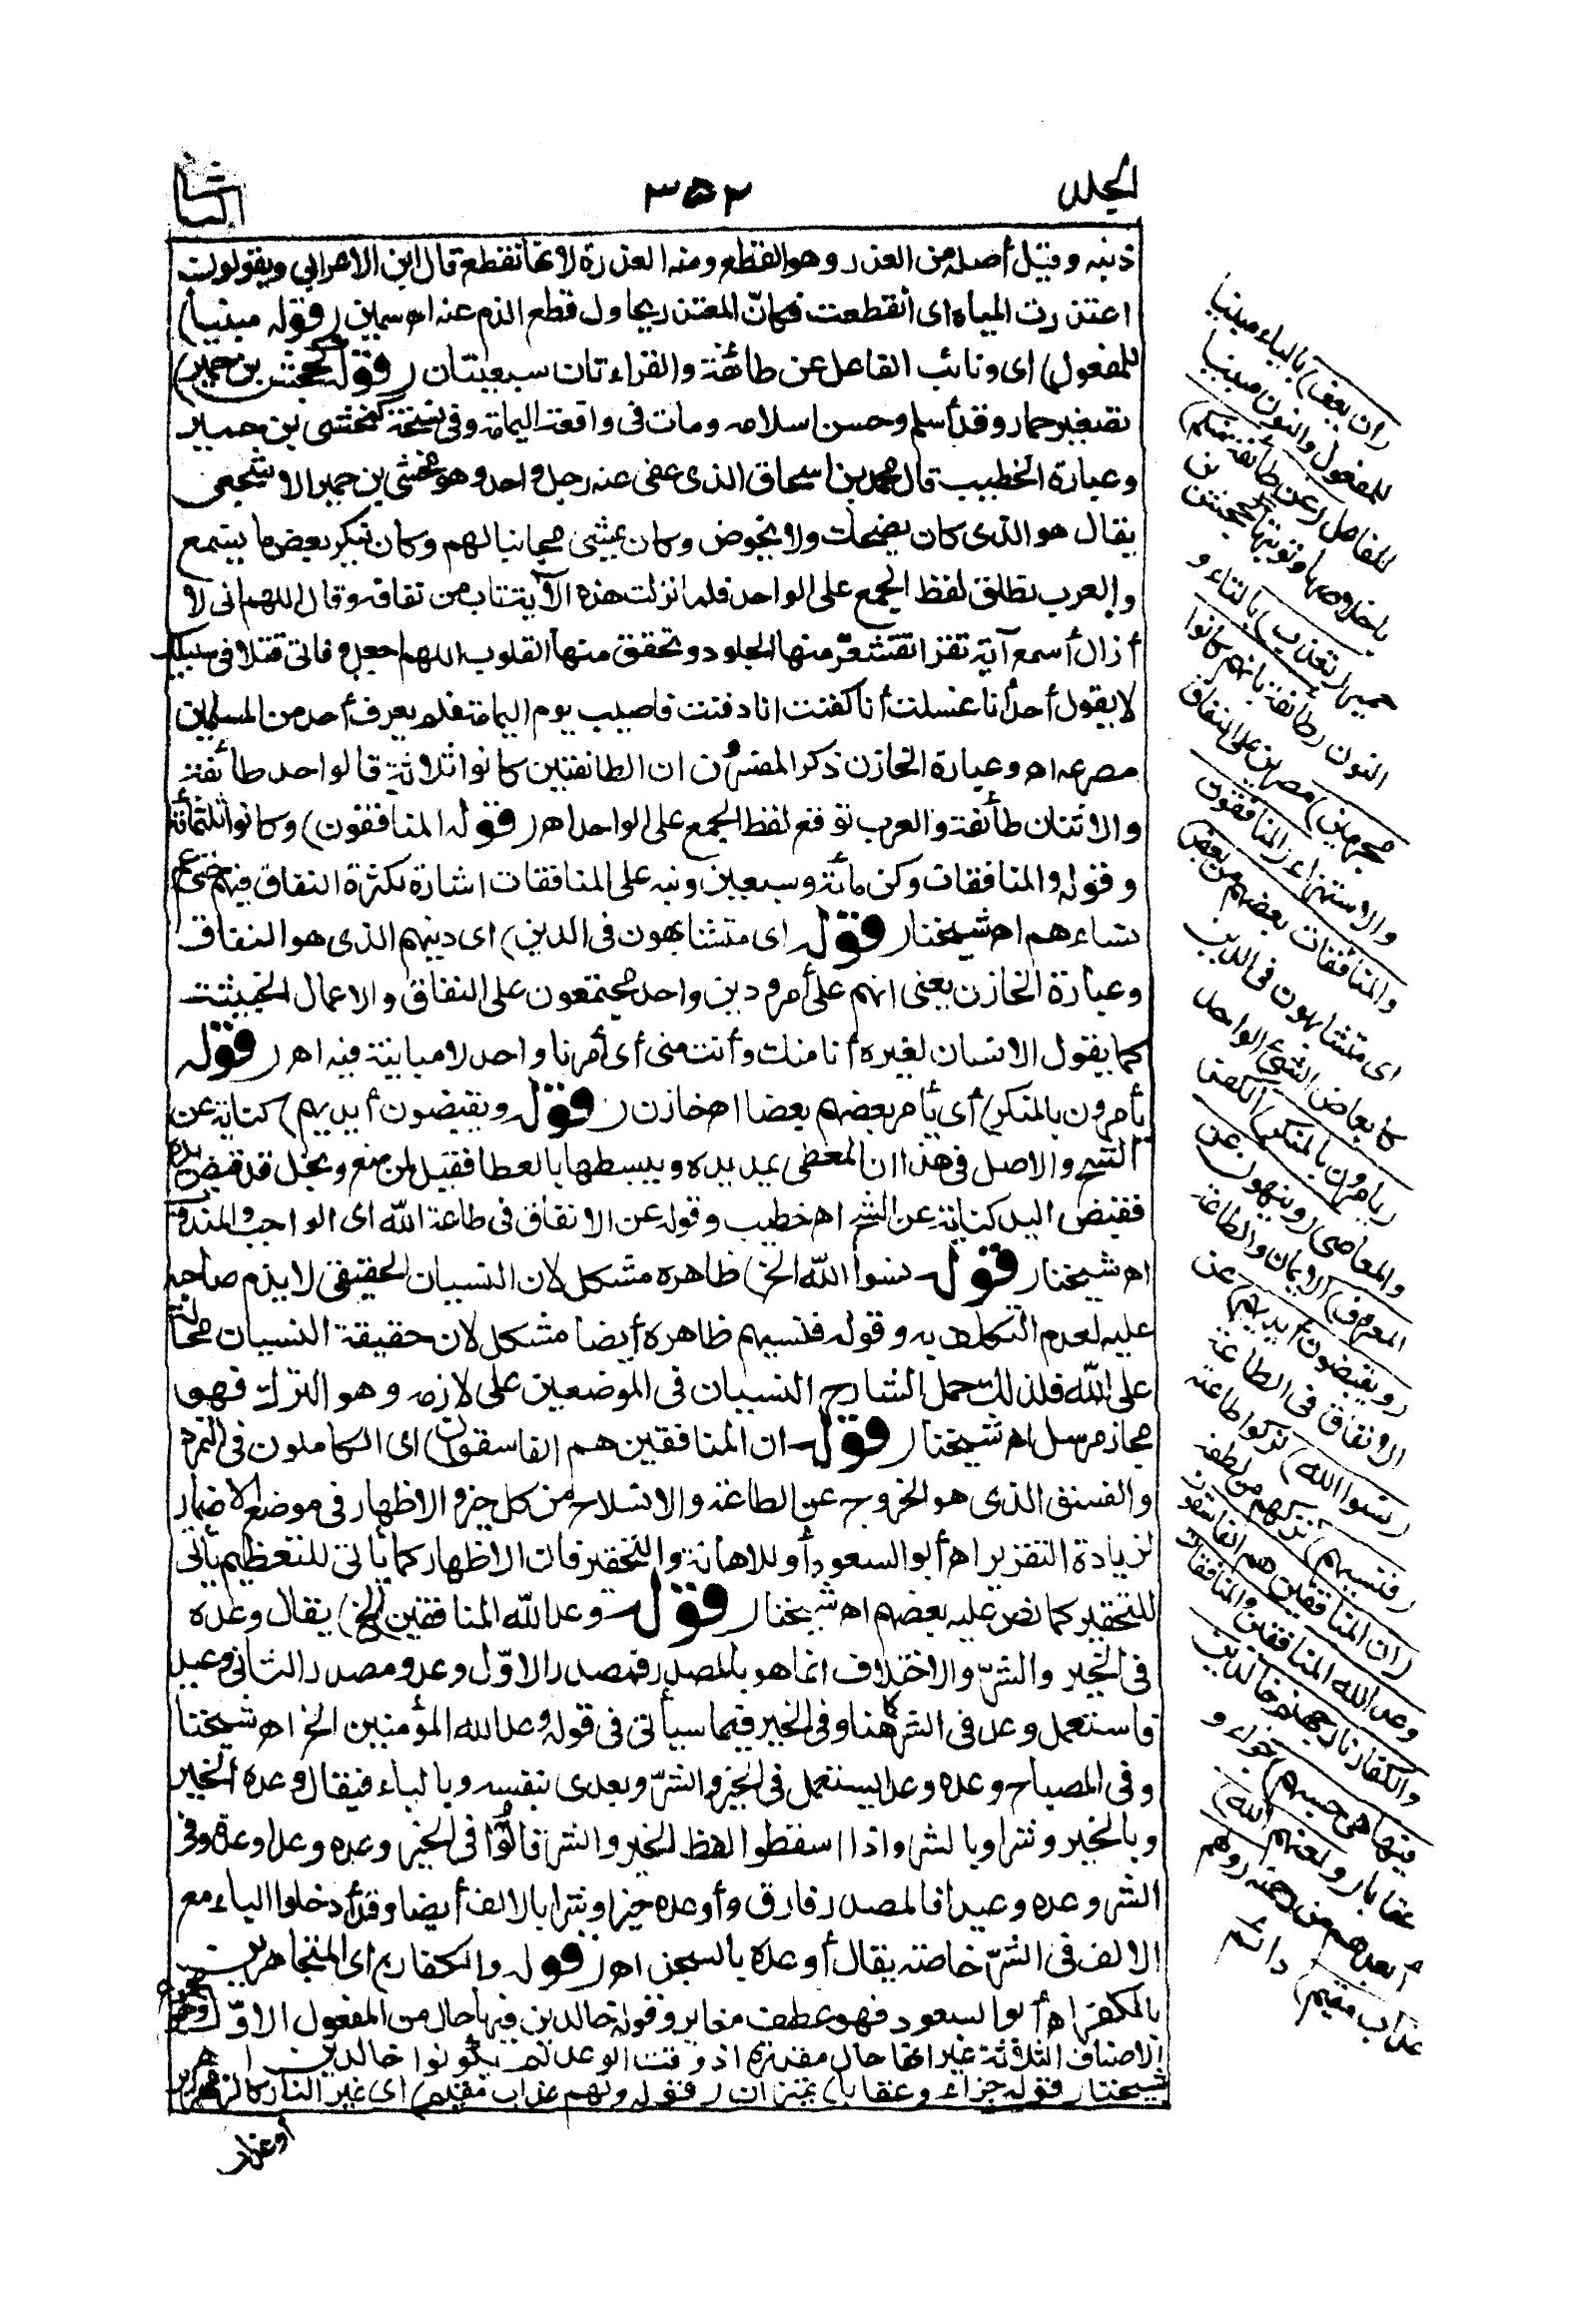 الجلد
٣٥٢
الثاني
ذنبه وقيل أصله من العذر وهو القطع ومنه العذرة لانها تقطع قال ابن الاعرابي ويقولون
اعتذرت المياه اى انقطعت فكانّ المعتذر يحاول قطع الذم عنه اه سمين (قوله مبنيا
للمفعول) اى ونائب الفاعل عن طائفة والقراءتان سبعيتان (قوله كجحش بن حمير)
تصغير حمار وقد أسلم وحسن اسلامه ومات فى واقعة اليمامة وفى نسخة كمخشى بن حمير
وعبارة الخطيب قال محمد بن اسحاق الذى عفى عنه رجل واحد وهو مخشى بن حمير الاشجعى
يقال هو الذى كان يضحك ولا يخوض وكان يمشى مجانبا لهم وكان ينكر بعض ما يسمع
والعرب تطلق لفظ الجمع على الواحد فلما نزلت هذه الآية تاب من نفاقه وقال اللهم انى لا
أزال أسمع آية تقرا تقشعرّ منها الجلود وتخفق منها القلوب اللهم اجعل وفاتى قتلا فى سبيلك
لا يقول أحد أنا غسلت أنا كفنت انا دفنت فاصيب يوم اليمامة فلم يعرف أحد من المسلمين
مصرعه اه وعبارة الخازن ذكر المفسرون ان الطائفتين كانوا ثلاثة قالواحد طائفة
والاثنان طائفة والعرب توقع لفظ الجمع على الواحد اه (قوله المنافقون) وكانوا ثلثمائة
وقوله والمنافقات وكن مائة وسبعين ونبه على المنافقات اشارة لكثرة النفاق فيهم حتى عمّ
نساءهم اه شيخنا (قوله اى متشابهون فى الدين) اى دينهم الذى هو النفاق
وعبارة الخازن يعنى انهم على أمر ودين واحد مجتمعون على النفاق والاعمال الخبيثة
كما يقول الانسان لغيره أنا منك وأنت منى أى أمرنا واحد لا مباينة فيه اه (قوله
يأمرون بالمنكر) أى يأمر بعضهم بعضا اه خازن (قوله ويقبضون أيديهم) كناية عن
الشح والاصل فى هذا ان المعطى يمد يده ويبسطها بالعطا فقيل لمن منع وبخل قد قبض يده
فقبض اليد كناية عن الشح اه خطيب وقوله عن الانفاق فى طاعة الله اى الواجب والمندوب
اه شيخنا (قوله نسوا الله الخ) ظاهره مشكل لان النسيان الحقيقى لا يذم صاحبه
عليه لعدم التكليف به وقوله فنسيهم ظاهره أيضا مشكل لان حقيقة النسيان محالة
على الله فلذلك حمل الشارح النسيان فى الموضعين على لازمه وهو الترك فهو
مجاز مرسل اه شيخنا (قوله ان المنافقين هم الفاسقون) اى الكاملون فى التمرد
والفسق الذى هو الخروج عن الطاعة والانسلاخ من كل خير والاظهار فى موضع الاضمار
لزيادة التقرير اه أبو السعود أو للاهانة والتحقير فان الاظهار كما يأتى للتعظيم يأتى
للتحقير كما نص عليه بعضهم اه شيخنا (قوله وعد الله المنافقين الخ) يقال وعده
فى الخير والشرّ والاختلاف انما هو بالمصدر فمصدر الاوّل وعد ومصدر الثانى وعيد
فاستعمل وعد فى الشر كما هنا وفى الخير فيما سيأتى فى قوله وعد الله المؤمنين الخ اه شيخنا
وفى المصباح وعده وعدا يستعمل فى الخير والشرّ ويعدى بنفسه وبالباء فيقال وعده الخير
وبالخير وشرا وبالشر واذا اسقطوا لفظ الخير والشر قالوا فى الخير وعده وعدا وعدة وفى
الشر وعده وعيدا فالمصدر فارق وأوعده خيرا وشرا بالالف أيضا وقد أدخلوا الباء مع
الالف فى الشرّ خاصة يقال أوعده بالسجن اه (قوله والكفار) اى المتجاهرين
بالكفر اه أبو السعود فهو عطف مغاير وقوله خالدين فيها حال من المفعول الاوّل
الاصناف الثلاثة غير انها حال مقدرة اذ وقت الوعد لم يكونوا خالدين اه
شيخنا (قوله جزاء وعقابا) تمييزان (قوله ولهم عذاب مقيم) اى غير النار كالزمهرير
أو عذاب
(ان يعف) بالياء مبنيا
للمفعول والنون مبنيا
للفاعل (عن طائفة منكم)
باخلاصها وتوبتها كجحش بن
حمير (تعذب) بالتاء و
النون (طائفة بانهم كانوا
مجرمين) مصرين على النفاق
والاستهزاء (المنافقون
والمنافقات بعضهم من بعض)
اى متشابهون فى الدين
كابعاض الشئ الواحد
(يامرون بالمنكر) الكفر
والمعاصى (وينهون عن
المعروف) الايمان والطاعة
(ويقبضون أيديهم) عن
الانفاق فى الطاعة
(نسوا الله) تركوا طاعته
(فنسيهم) تركهم من لطفه
(ان المنافقين هم الفاسقون
وعد الله المنافقين والمنافقات
والكفار نار جهنم خالدين
فيها هى حسبهم) جزاء و
عقابا (ولعنهم الله)
أبعدهم من رحمته (ولهم
عذاب مقيم) دائم